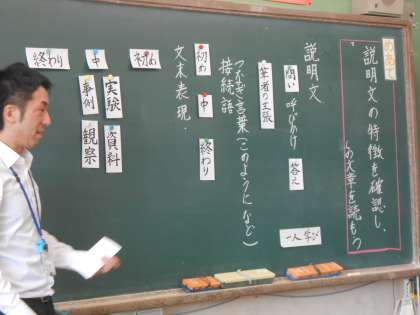 めあて
説明文の特徴を確認し、
の文章を読もう
説明文
問い
呼びかけ
答え
筆者の主張
一人学び
つなぎ言葉(このようになど)
接続語
初め
中
終わり
文末表現・
初め
中
終わり
実験
事例
資料
観察